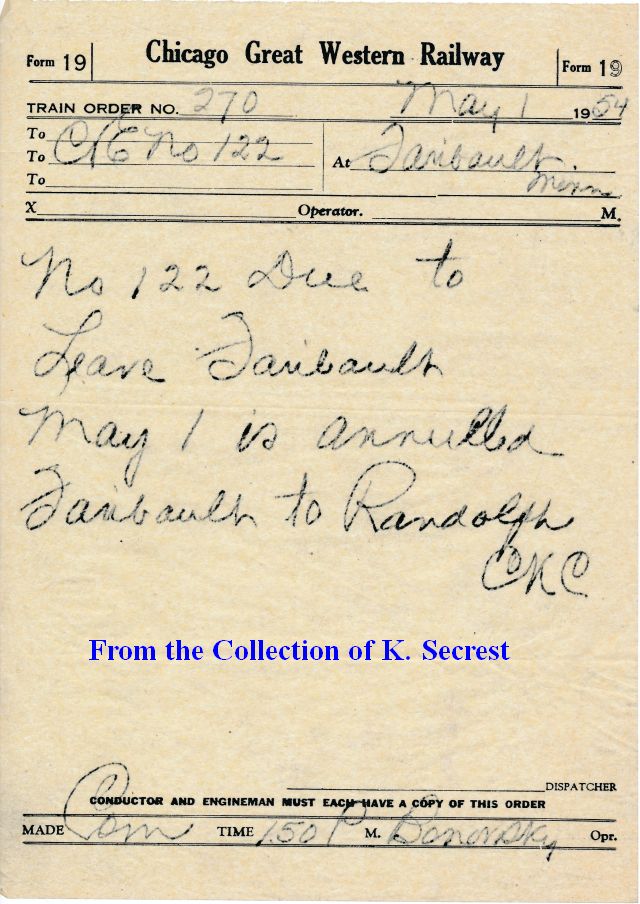 Chicago Great Western Railway
Form 19 Form 19
TRAIN ORDER NO. 270 May 1 1954
To
To C&E No 122 At Faribault.
To Minn
X Operator. M.
No 122 Due to
Leave Faribault
May 1 is annulled
Faribault to Randolph
CKC
From the Collection of K. Secrest
DISPATCHER
CONDUCTOR AND ENGINEMAN MUST EACH HAVE A COPY OF THIS ORDER
MADE Com TIME 150 P M. Opr.